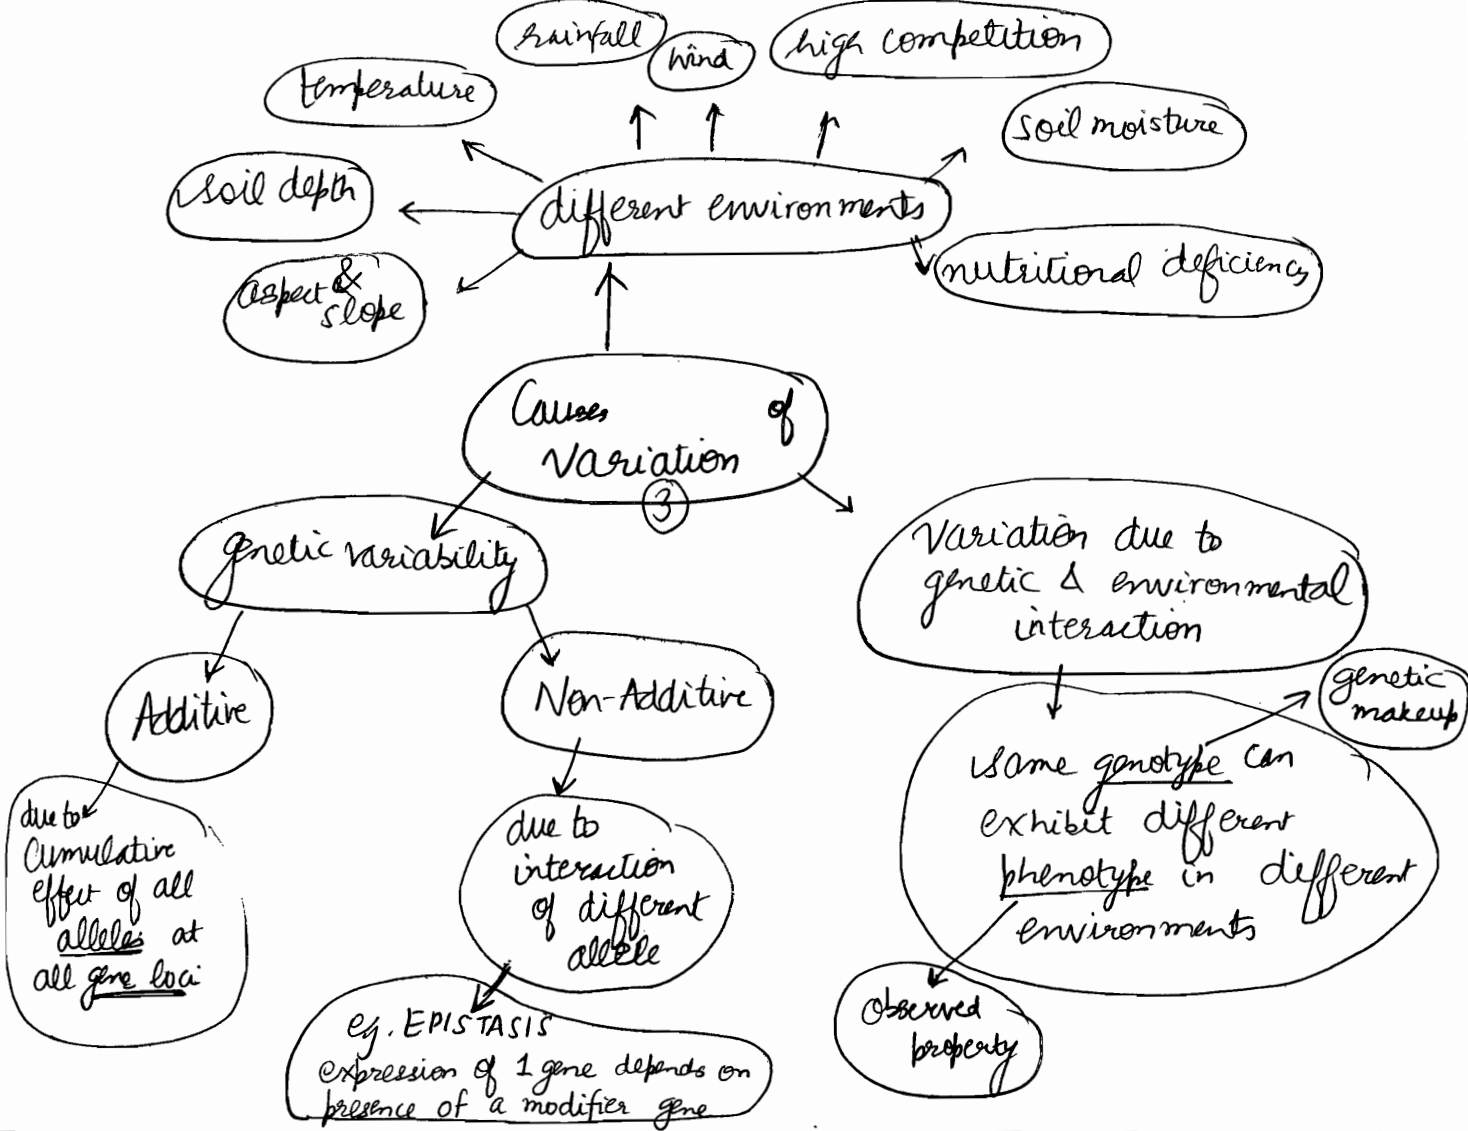 rainfall
wind
high competition
temperature
soil moisture
soil depth
different environments
nutritional deficiency
aspect &
slope
Causes of
Variation
3
genetic variability
Variation due to
genetic & environmental
interaction
Additive
Non-Additive
genetic
makeup
same genotype can
exhibit different
phenotype in different
environments
due to
Cumulative
effect of all
alleles at
all gene loci
due to
interaction
of different
allele
observed
property
eg. EPISTASIS
expression of 1 gene depends on
presence of a modifier gene